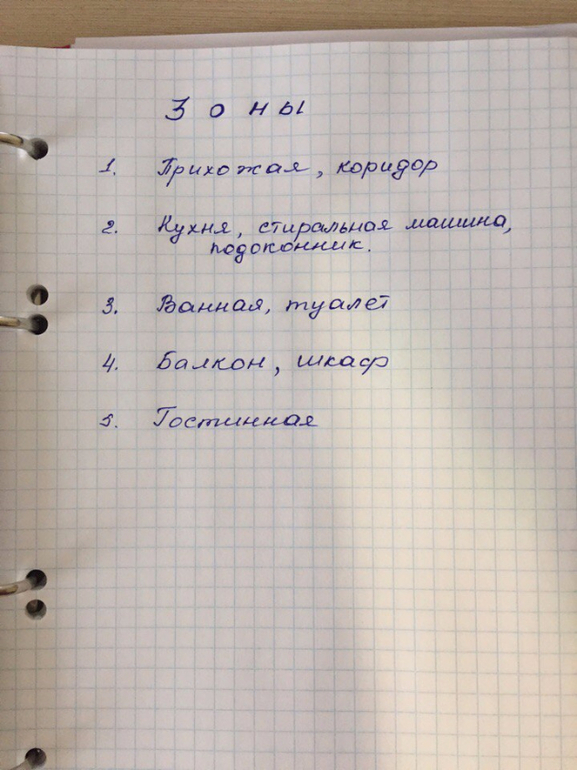 Зоны
1. Прихожая, коридор
2. Кухня, стиральная машина,
подоконник.
3. Ванная, туалет
4. Балкон, шкаф
5. Гостинная